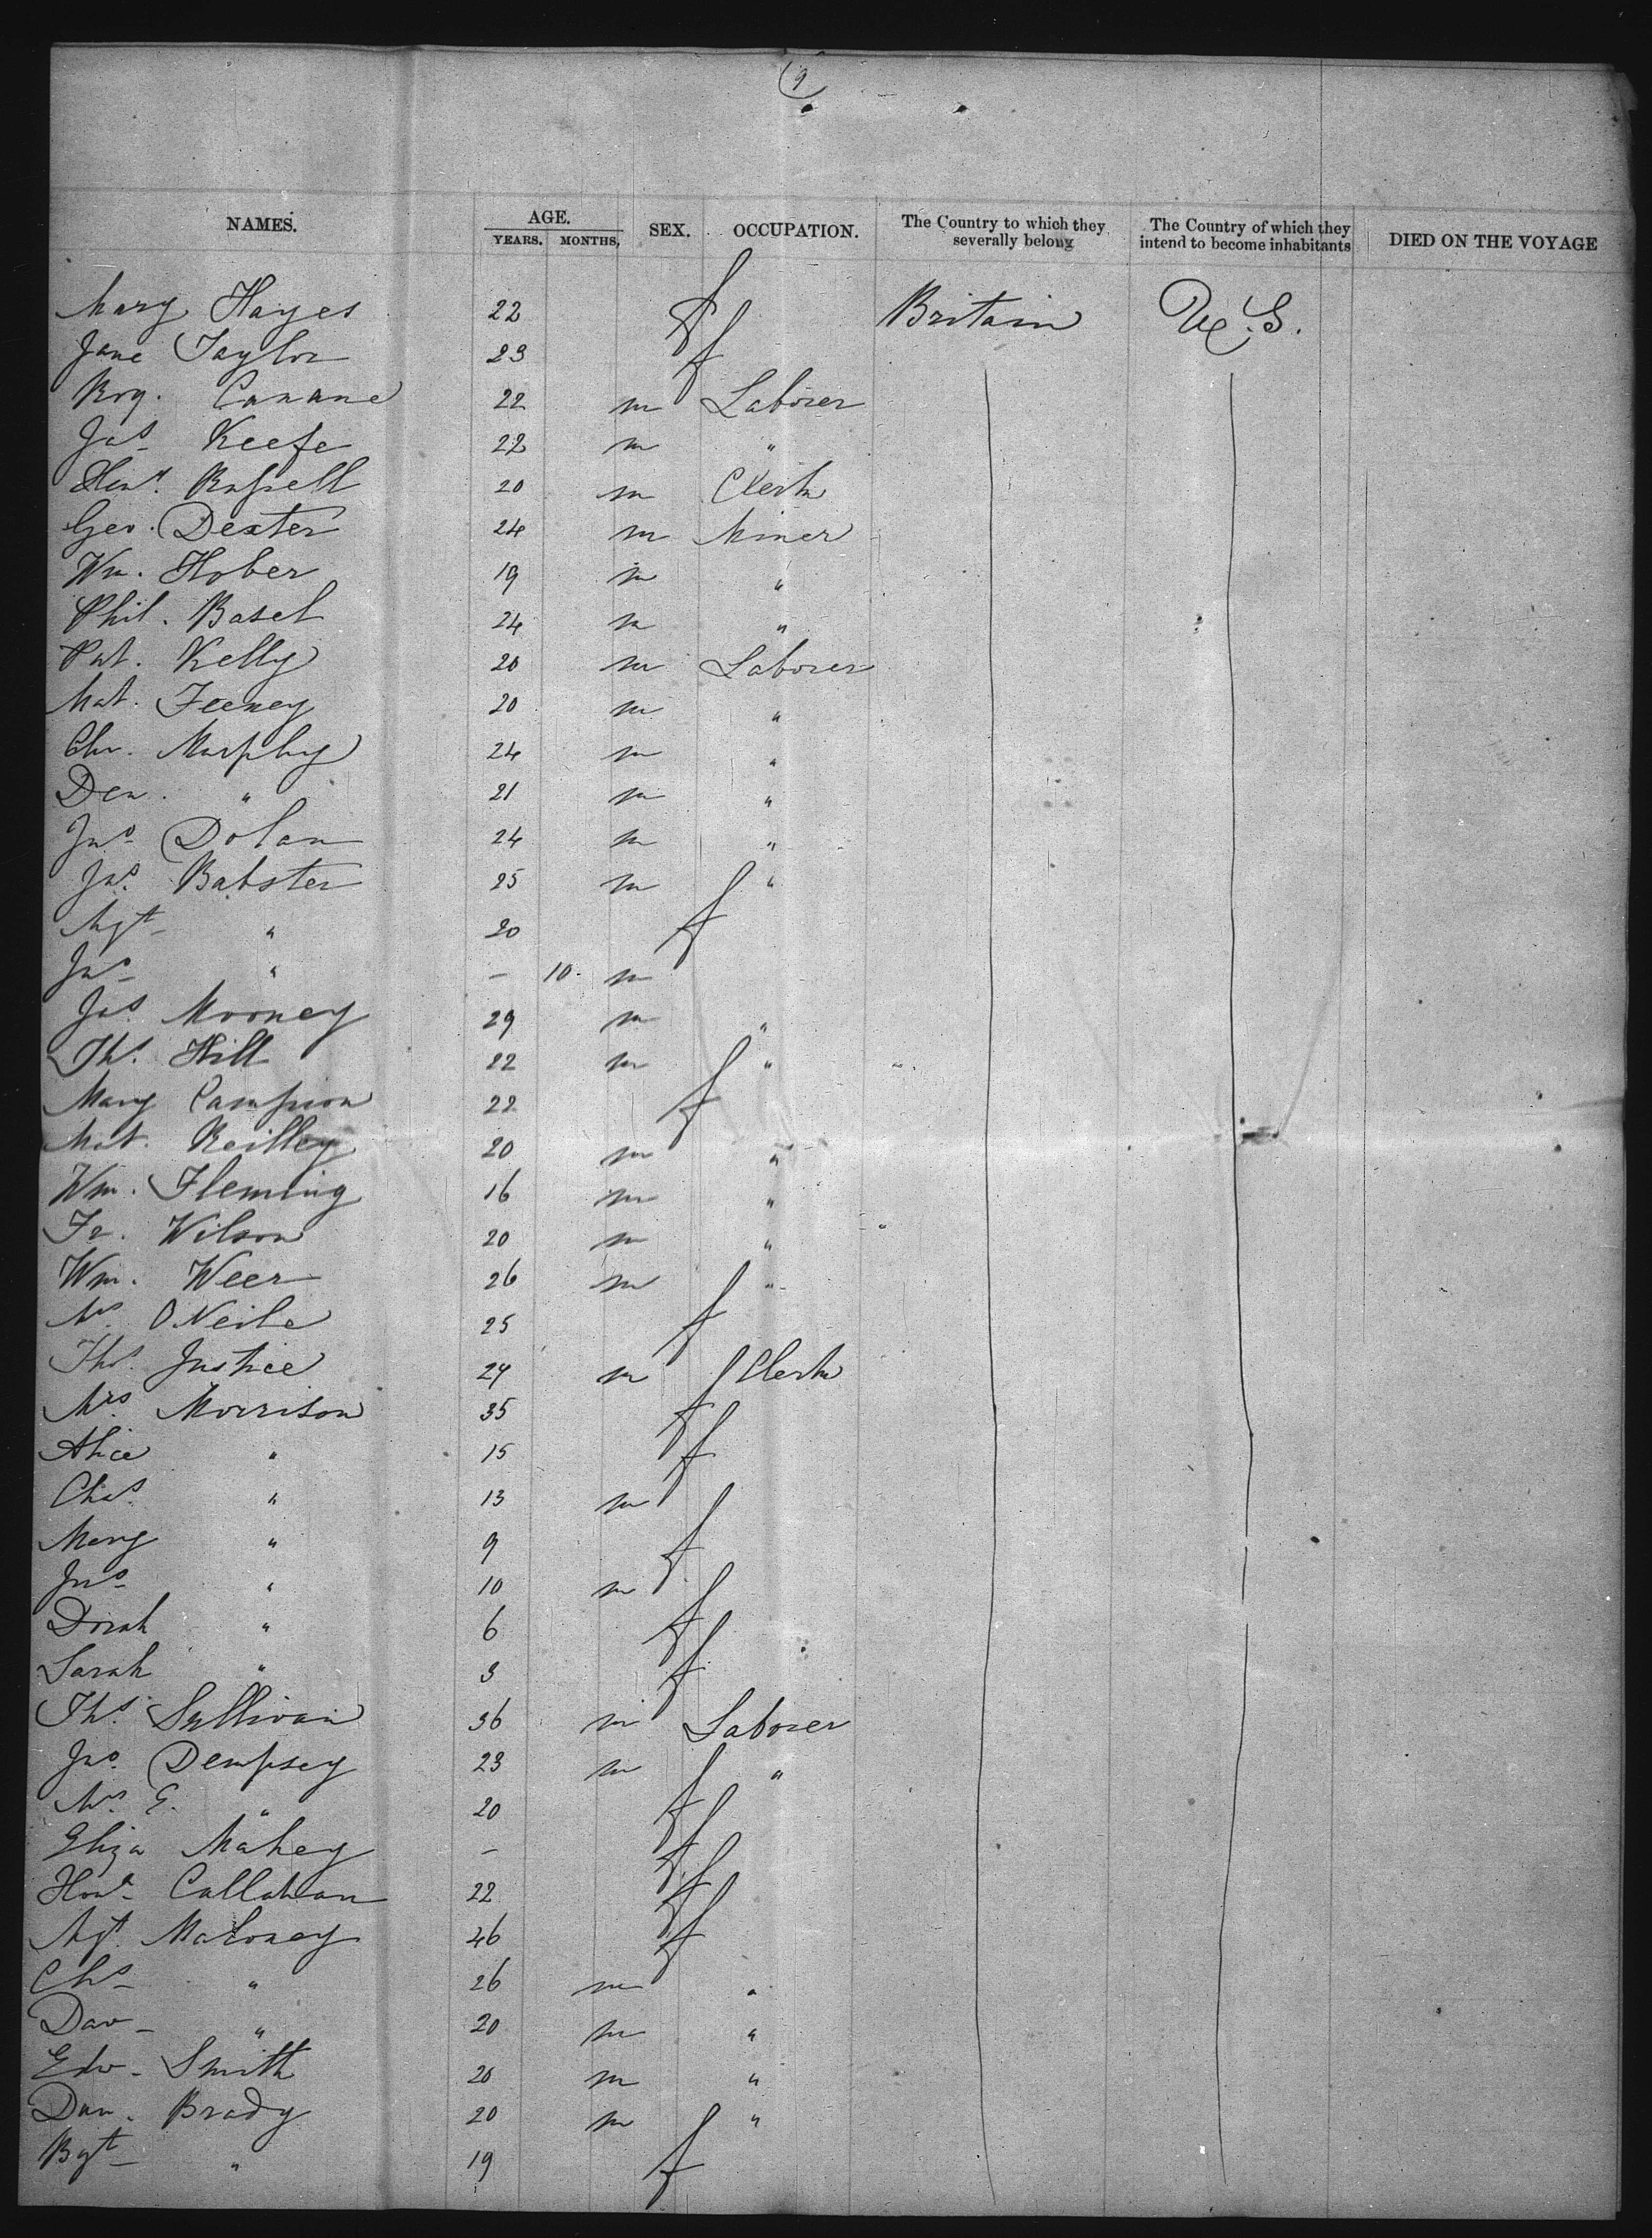 9
NAMES. AGE. YEARS. MONTHS, SEX. OCCUPATION. The Country to which they severally belong The Country of which they intend to become inhabitants DIED ON THE VOYAGE
Mary Hayes 22 f Britain U.S.
Jane Taylor 23 f
Roy. Canane 22 m Laborer
Jas Keefe 22 m "
Russell 20 m Clerk
Geo. Dexter 24 m Miner
Wm. Hober 19 m "
Phil. Basel 24 m "
Pat. Kelly 20 m Laborer
Mat. Feeney 20 m "
Chr. Murphy 24 m "
Den. " 21 m "
Jno Dolan 24 m "
Jas. Babster 25 m "
Mgt " 20 f
Jno " – 10 m
Jas. Mooney 29 m "
Ths. Hill 22 m "
Mary Campion 22 f
Mat. Reilley 20 m "
Wm. Fleming 16 m "
Fr. Wilson 20 m "
Wm. Weer 26 m "
Mrs. O Neile 25 f
Thos. Justice 24 m Clerk
Mrs. Morrison 35 f
Alice " 15 f
Chas. " 13 m
Mary " 9 f
Jno " 10 m
Dorah " 6 f
Sarah " 3 f
Ths. Sullivan 36 m Laborer
Jno. Dempsey 23 m "
Mrs. E. " 20 f
Eliza Mahey – f
Hona Callahan 22 f
Mgt. Maloney 46 f
Chs " 26 m "
Dav " 20 m "
Edw Smith 20 m "
Dan. Brady 20 m "
Bgt " 19 f